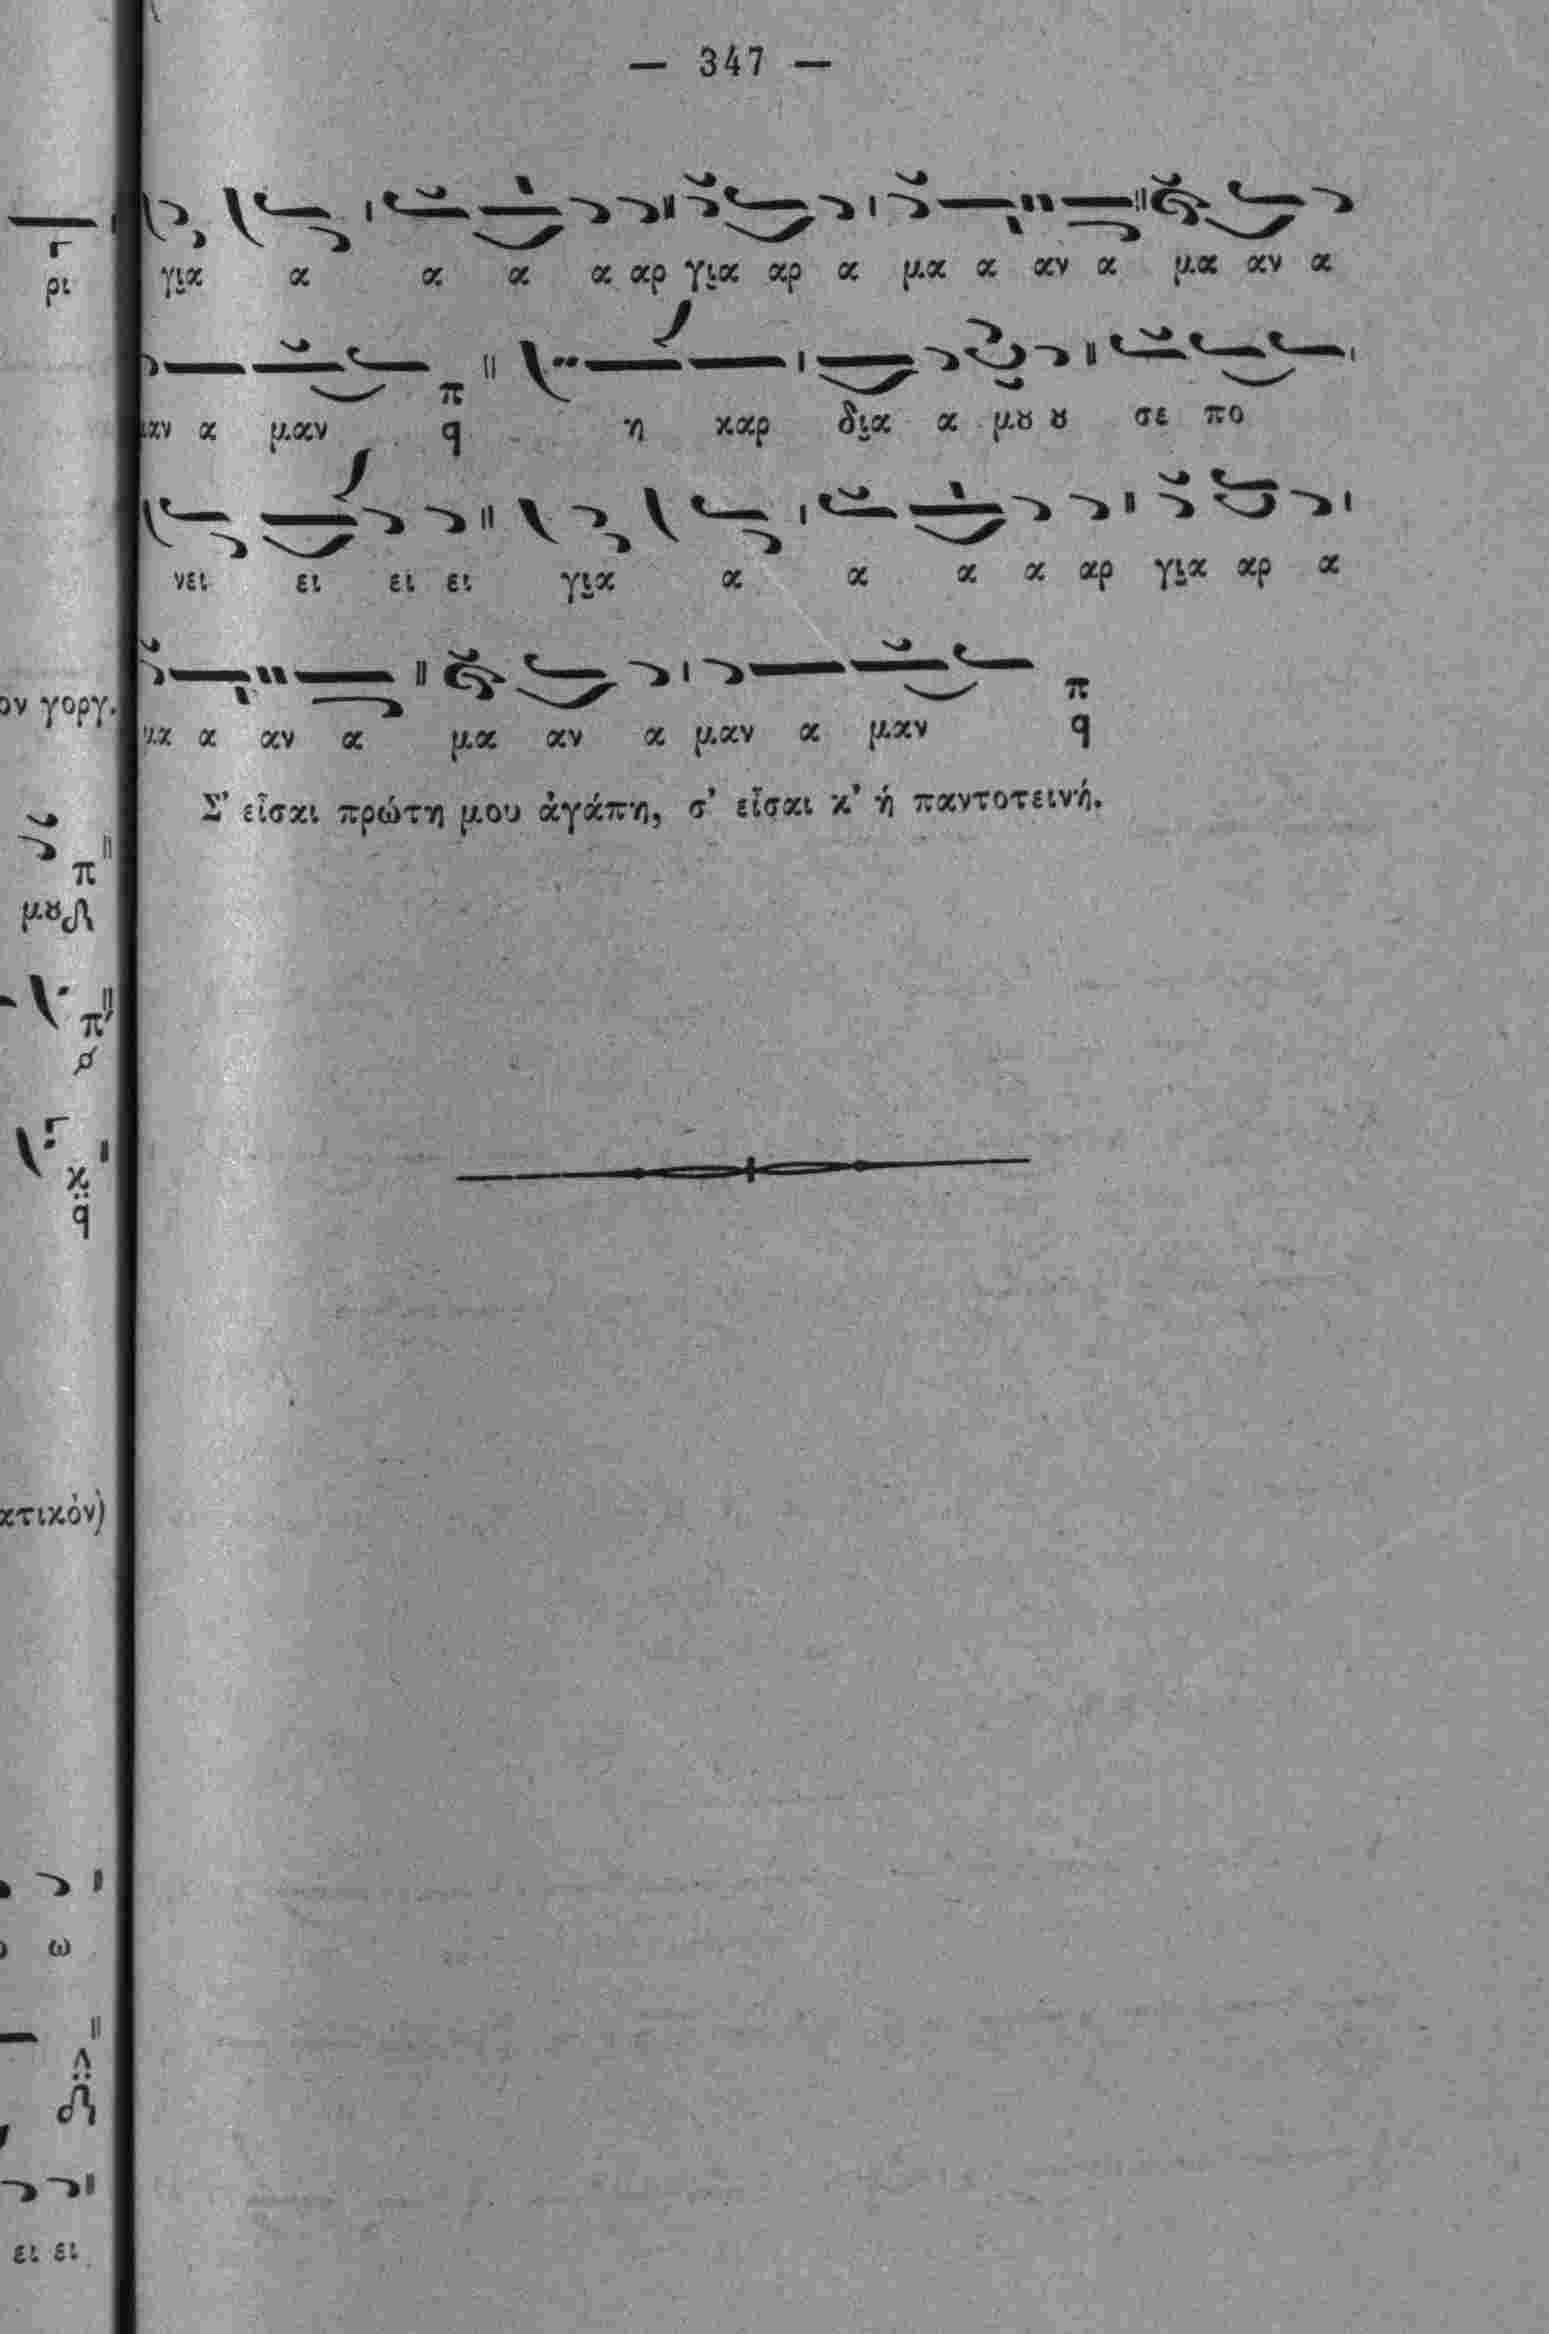 — 347 —
για α α α α αρ για αρ α μα α αν α μα αν α
αν α μαν π q η καρ δια α μȣ ȣ σε πο
νει ει ει ει για α α α α αρ για αρ α
μα α αν α μα αν α μαν α μαν π q
Σ' εἶσαι πρώτη μου ἀγάπη, σ' εἶσαι κ' ἡ παντοτεινή.
ρι
ον γοργ.
π
μȣ
π'
κ
q
ατικὸν)
ω
ει ει